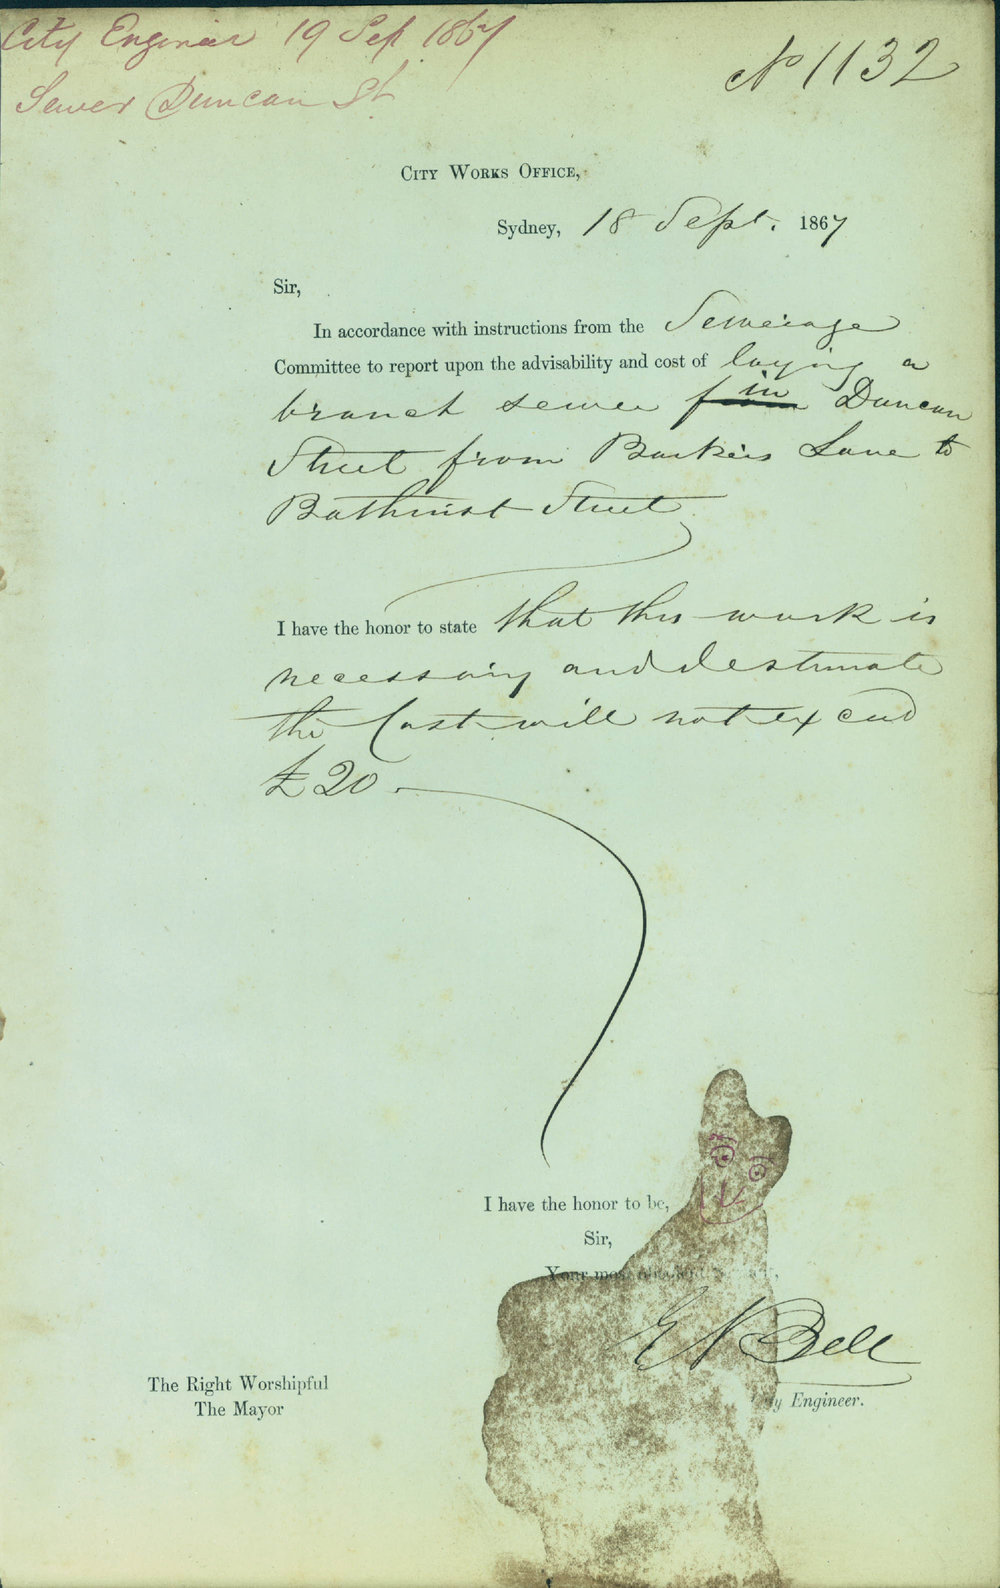 City Engineer 19 Sep 1867
Sewer Duncan St
No 1132
City Works Office,
Sydney, 18 Sept. 1867
Sir,
In accordance with instructions from the Sewerage
Committee to report upon the advisability and cost of laying a
branch sewer in Duncan
Street from Barkers Lane to
Bathurst Street
I have the honor to state that this work is
necessary and I estimate
the Cost will not exceed
£20
I have the honor to be,
Sir,
Your most
E N Bell
City Engineer.
The Right Worshipful
The Mayor